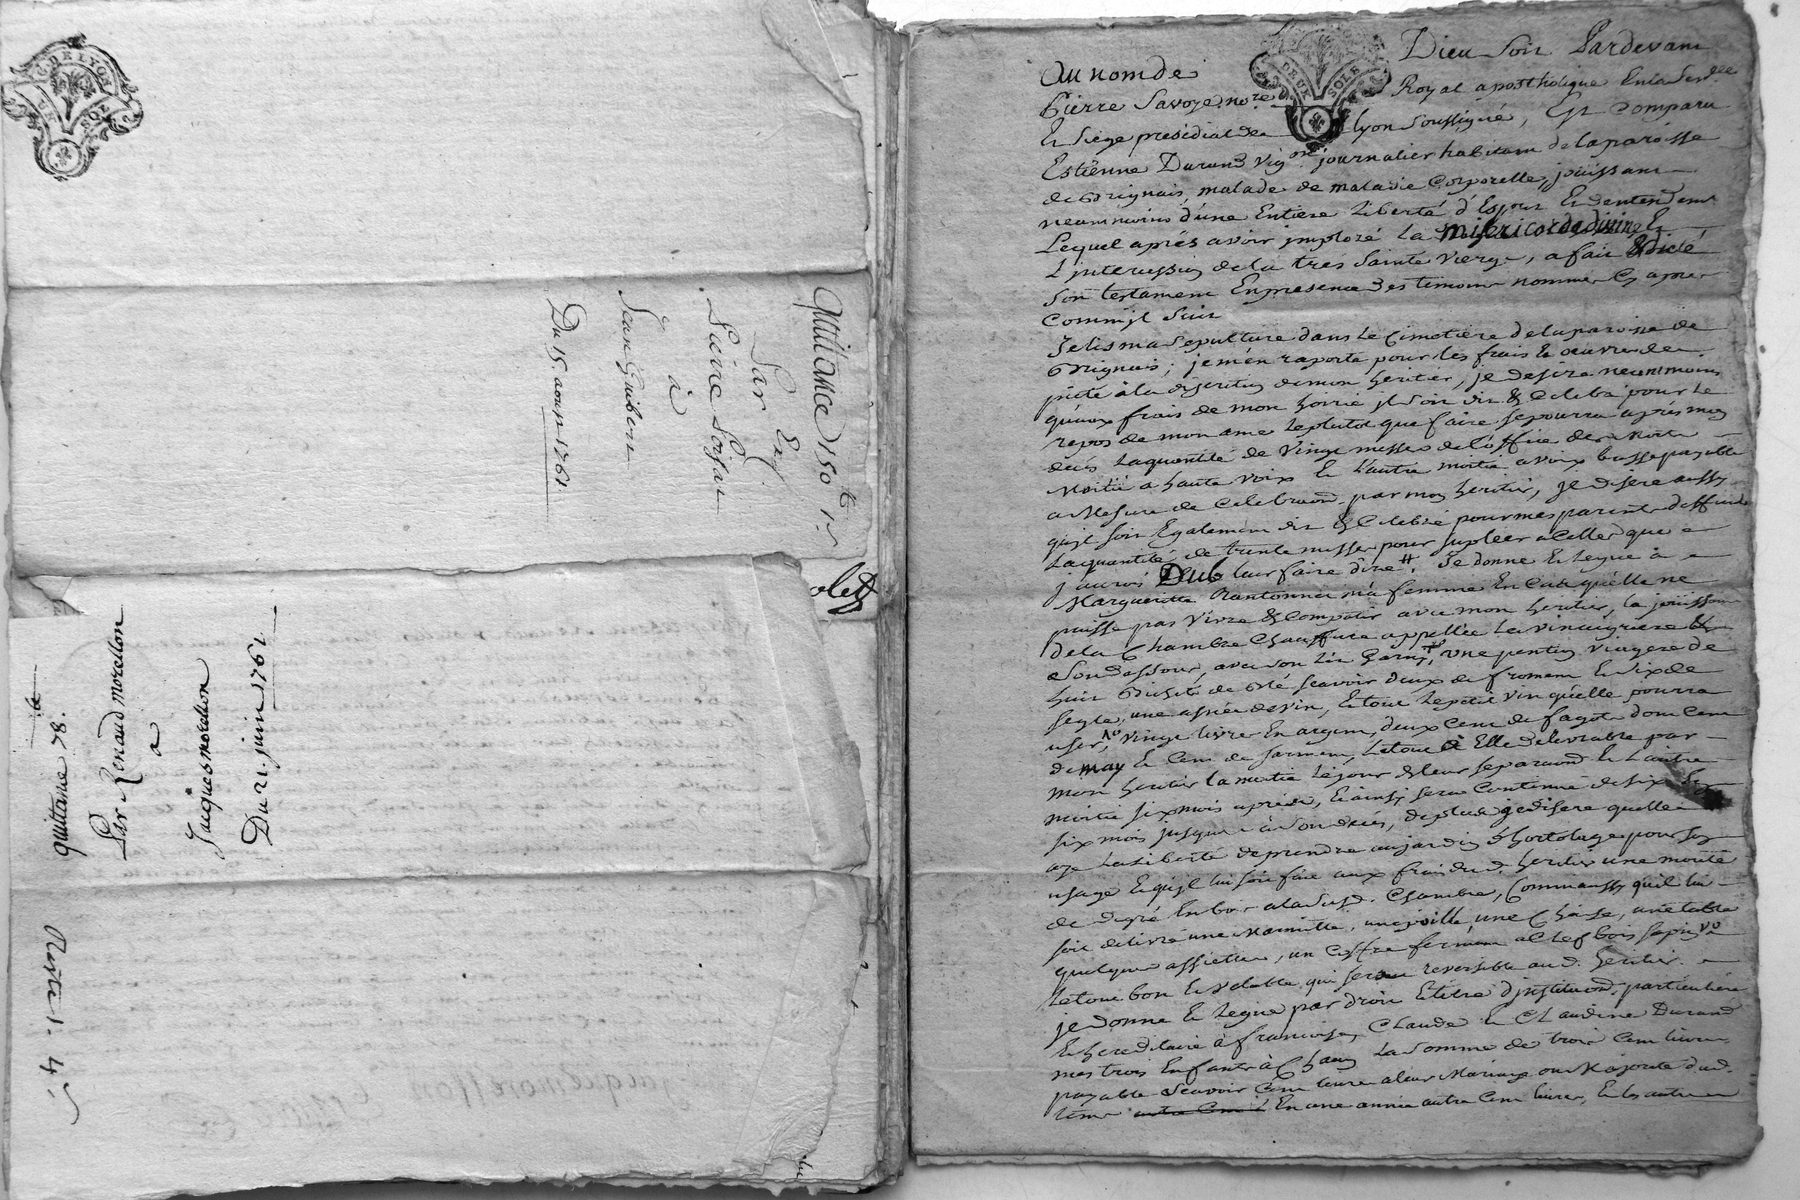 G. DE LYON
DEUX SOLS
quittance 150 tt 1 s
Par Erx
à
Jean Guibert
Du 15. aoust 1761.
olet
quittance 78.
Par Renaud morellon
a
Jacques morellon
Du 21. juin 1761
DEUX SOLS
Au nom de Dieu soit Pardevant
Pierre Savoye no.re Royal apostholique En la Sen.ée
Et Siege presidial de lyon soussigné, Est Comparu
Estienne Durand vig.on journalier habitant de la paroisse
de Brignais, malade de maladie Corporelle, joüissant
neanmoins d'une Entiere Liberté d'Esprit Et d'entendem.t
Lequel aprés avoir imploré La misericorde divine Et
L'intercession de la tres Sainte Vierge, a fait & dicté
Son testament En presence des temoins nommes Cy aprés
Comm'jl suit
J'elis ma Sepulture dans Le Cimetiére de la paroisse de
Brignais; je m'en raporte pour les frais Et oeuvres de
pieté à la discretion de mon heritier, je desire neantmoins
qu'aux frais de mon hoirie jl soit dit & Celebré pour Le
repos de mon ame Le plutot que faire se pourra aprés mon
decés La quantité de Vingt messes de l'office des Morts
Moitié a haute voix Et L'autre moitié a voix basse payable
a Mesure de Celebraon par mon heritier, je desire aussy
qu'jl soit Egalement dit & Celebré pour mes parents deffunts
La quantité de trente messes pour supleer a Celles que
j'aurois Deub leur faire dire. Je donne Et Legue à
Marguerite ma femme En Cas qu'elle ne
puisse pas Vivre & Compatir avec mon heritier, la joüissance
de la Chambre Chauffure appellée La vinaigriere
& Son dessous, avec son Lit garny, une pention viagere de
huit Bichets de Blé scavoir deux de froment Et six de
segle, une asnée de vin, Et tout Le petit vin qu'elle pourra
user, Vingt livres En argent, deux Cent de fagots dont Cent
de may Et Cent de sarment, Le tout à Elle delivrable par
mon heritier la moitié Le jour de leur separaon Et L'autre
moitié six mois aprés, Et ainsy sera Continué de six En
six mois jusques à Son decés, de plus je desire qu'elle
aye La Liberté de prendre au jardin d'hortolage pour son
usage Et qu'jl lui soit fait aux frais dud. heritier une montée
de degré En bois a la Susd. Chambre, Comm'aussy qu'il lui
soit delivré une Marmitte, une poille, une Chaise, une table
quelques assiettes, un Coffre fermant a Clef bois sapin
Le tout bon Et Valable qui sera reversible aud. heritier.
je donne Et Legue par droit Et titre d'jnstituon particuliére
Et hereditaire à francoise, Claude Et Claudine Durand
mes trois Enfants à Chacun La Somme de trois Cent livres
payable Scavoir Cent livres a leur Mariage ou Majorité dud.
tems En une année autre Cent livres, Et les autres